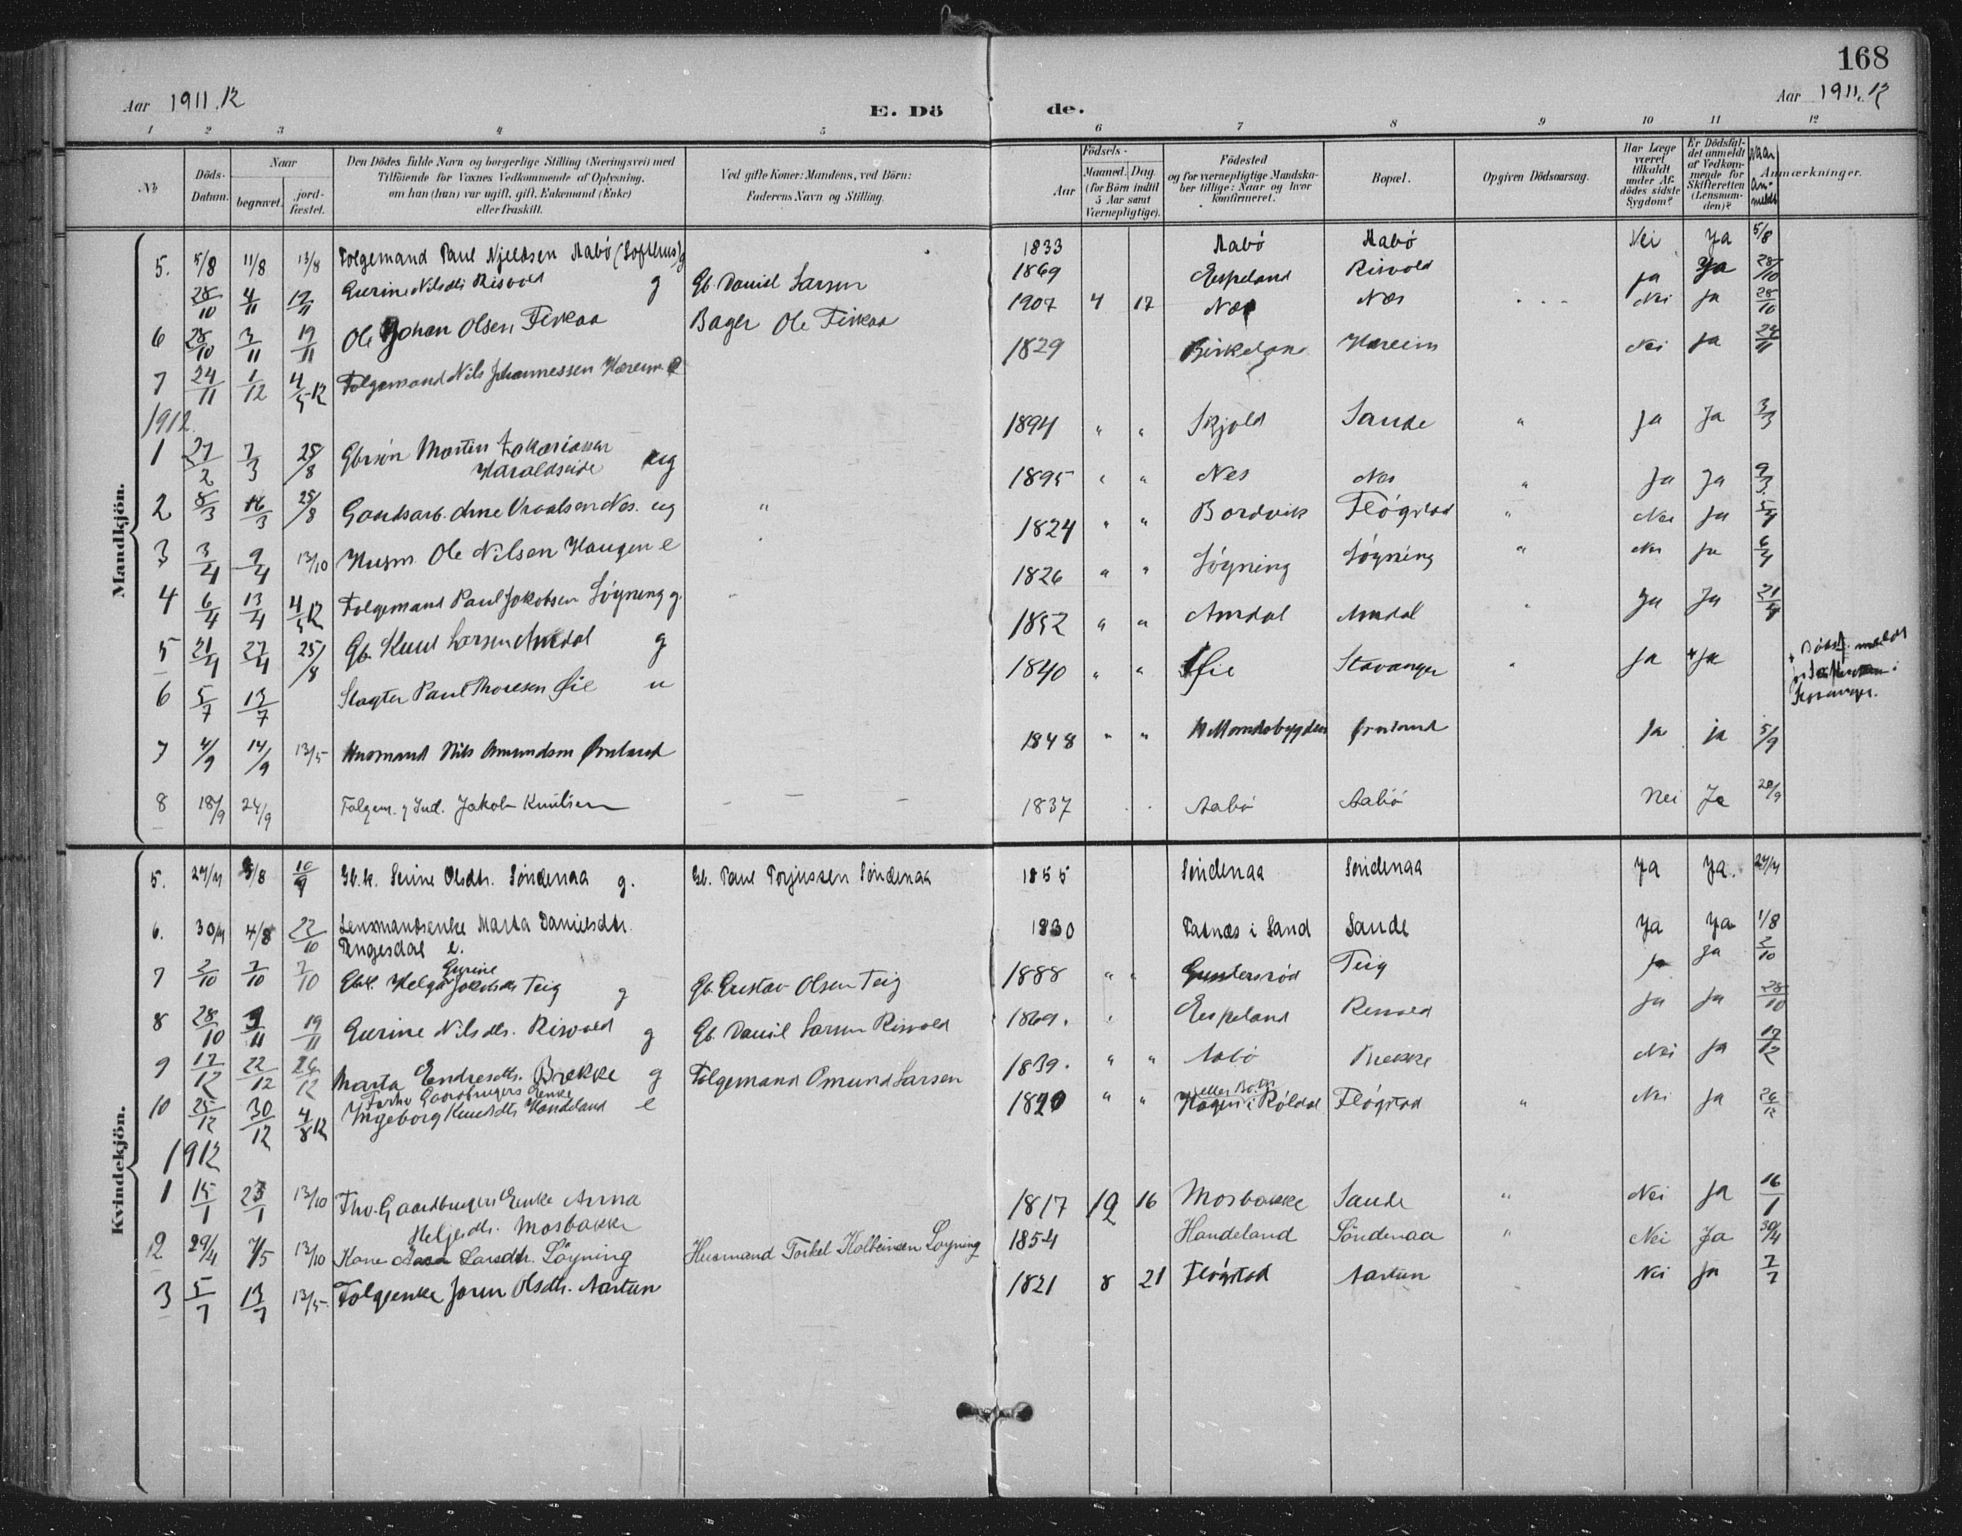 168
Aar 1911.12
E. Dö de.
Aar 1911.12
1 2 3 4 5 6 7 8 9 10 11 12
No.
Döds-Datum.
Naar
begravet.
jord-fæstet.
Den Dödes fulde Navn og borgerlige Stilling (Næringsvei) med
Tilföiende for Voxnes Vedkommende af Oplysning,
om han (hun) var ugift, gift, Enkemand (Enke)
eller fraskilt.
Ved gifte Koner: Mandens, ved Börn:
Faderens Navn og Stilling.
Födsels-
Aar
Maaned. Dag.
(for Börn indtil
5 Aar samt
Værnepligtige).
Födested
og for værnepligtige Mandska-
ber tillige: Naar og hvor
konfirmeret.
Bopæl.
Opgiven Dödsaarsag.
Har Læge
været
tilkaldt
under Af-
dödes sidste
Sygdom?
Er Dödsfal-
det anmeldt
af Vedkom-
mende for
Skifteretten
(Lensman-
den)?
Naar
an-
meldt
Anmærkninger.
Mandkjön.
5. 5/8 11/8 13/8 Folgemand Paul Njeldsen Aabö (Softhus) g 1833 Aabö Aabö Nei Ja 5/8
28/10 4/11 Gurine Nilsdtr Risvold g Gb. Daniel Larsen 1869 Espeland Risvold Ja Ja 28/10
6 28/10 3/11 19/11 Ole Johan Olsen Fiskaa Bager Ole Fiskaa 1907 4 17 Næs Næs Nei Ja 28/10
7 24/11 1/12 4/5-12 Folgemand Nils Johannessen Hareim e 1829 Birkeland Hareim Nei Ja 24/11
1912
1 27/2 7/3 25/8 Gbrsön Morten Zakariassen
Haraldseide ug 1894 " " Skjold Sande " Ja Ja 3/3
2 8/3 16/3 25/8 Gaardsarb. Arne Nes. ug " 1895 " " Nes Nes " Ja Ja 9/3
3 3/4 9/4 13/10 Husm Ole Nilsen Haugen e 1824 " " Bordvik Flögstad " Nei Ja 5/4
4 6/4 13/4 4/5 12 Folgemand Paul Jakobsen Löyning g. 1826 " " Löyning Löyning " Nei Ja 6/4
5 21/4 27/4 25/8 Gb. Knud Larsen Amdal g 1852 " " Amdal Amdal " Ja Ja 21/4
6 5/7 13/7 Slagter Paul Thoresen Øie u 1840 " " Øie Stavanger " Ja + Ja + Dödsf. meldt
Stavanger.
7 4/9 14/9 13/5 Husmand Nils Omundsen Ørnland 1848 " " Ørnland Ja ja 5/9
8 18/9 24/9 Folgem. Jakob Knutsen 1837 Aabö Aabö Nei Ja 20/9
Kvindekjön.
5. 8/8 Gb.k. Serine Olsdtr. Söndenaa g. Gb. Paul Torjussen Söndenaa 1855 Söndenaa Söndenaa Ja Ja.
6. 4/8 22/10 Lensmandsenke Marta Danielsdtr.
Tengesdal e. 1830 i Sand Sande Ja Ja 1/8
7 2/10 7/10 7/10 Gbk. Helga Gurine Jakobsdtr Teig g Gb. Gustav Olsen Teig 1888 " " Gundersröd Teig Ja Ja 2/10
8 28/10 19/11 Gurine Nilsdtr. Risvold g Gb. Daniel Larsen Risvold 1869. " Espeland Risvold Ja Ja 28/10
9 17/12 22/12 26/12 Marta Endresdtr. Brekke g Folgemand Omund Larsen 1839. " " Aabö Brekke Nei Ja 17/12
10 25/12 30/12 4/8 12 Forhv Gaardbrugers Enke
Ingeborg Knudsdtr Handeland e 1820 " " i Röldal Flögstad " Nei Ja 26/12
1912
1 15/1 23/1 13/10 Fhv. Gaardbrugers Enke Anna
Heljesdtr. Mosbakke 1817 12 16 Mosbakke Sande " Nei Ja 16/1
2 29/4 7/5 13/10 Kone Larsdtr. Löyning Husmand Torkel Kolbeinsen Löyning 1854 Handeland Söndenaa " Nei Ja 30/4
3 5/7 13/7 13/5 Folgeenke Joren Olsdtr. Aartun 1821 8 21 Flögstad Aartun Nei Ja 7/7